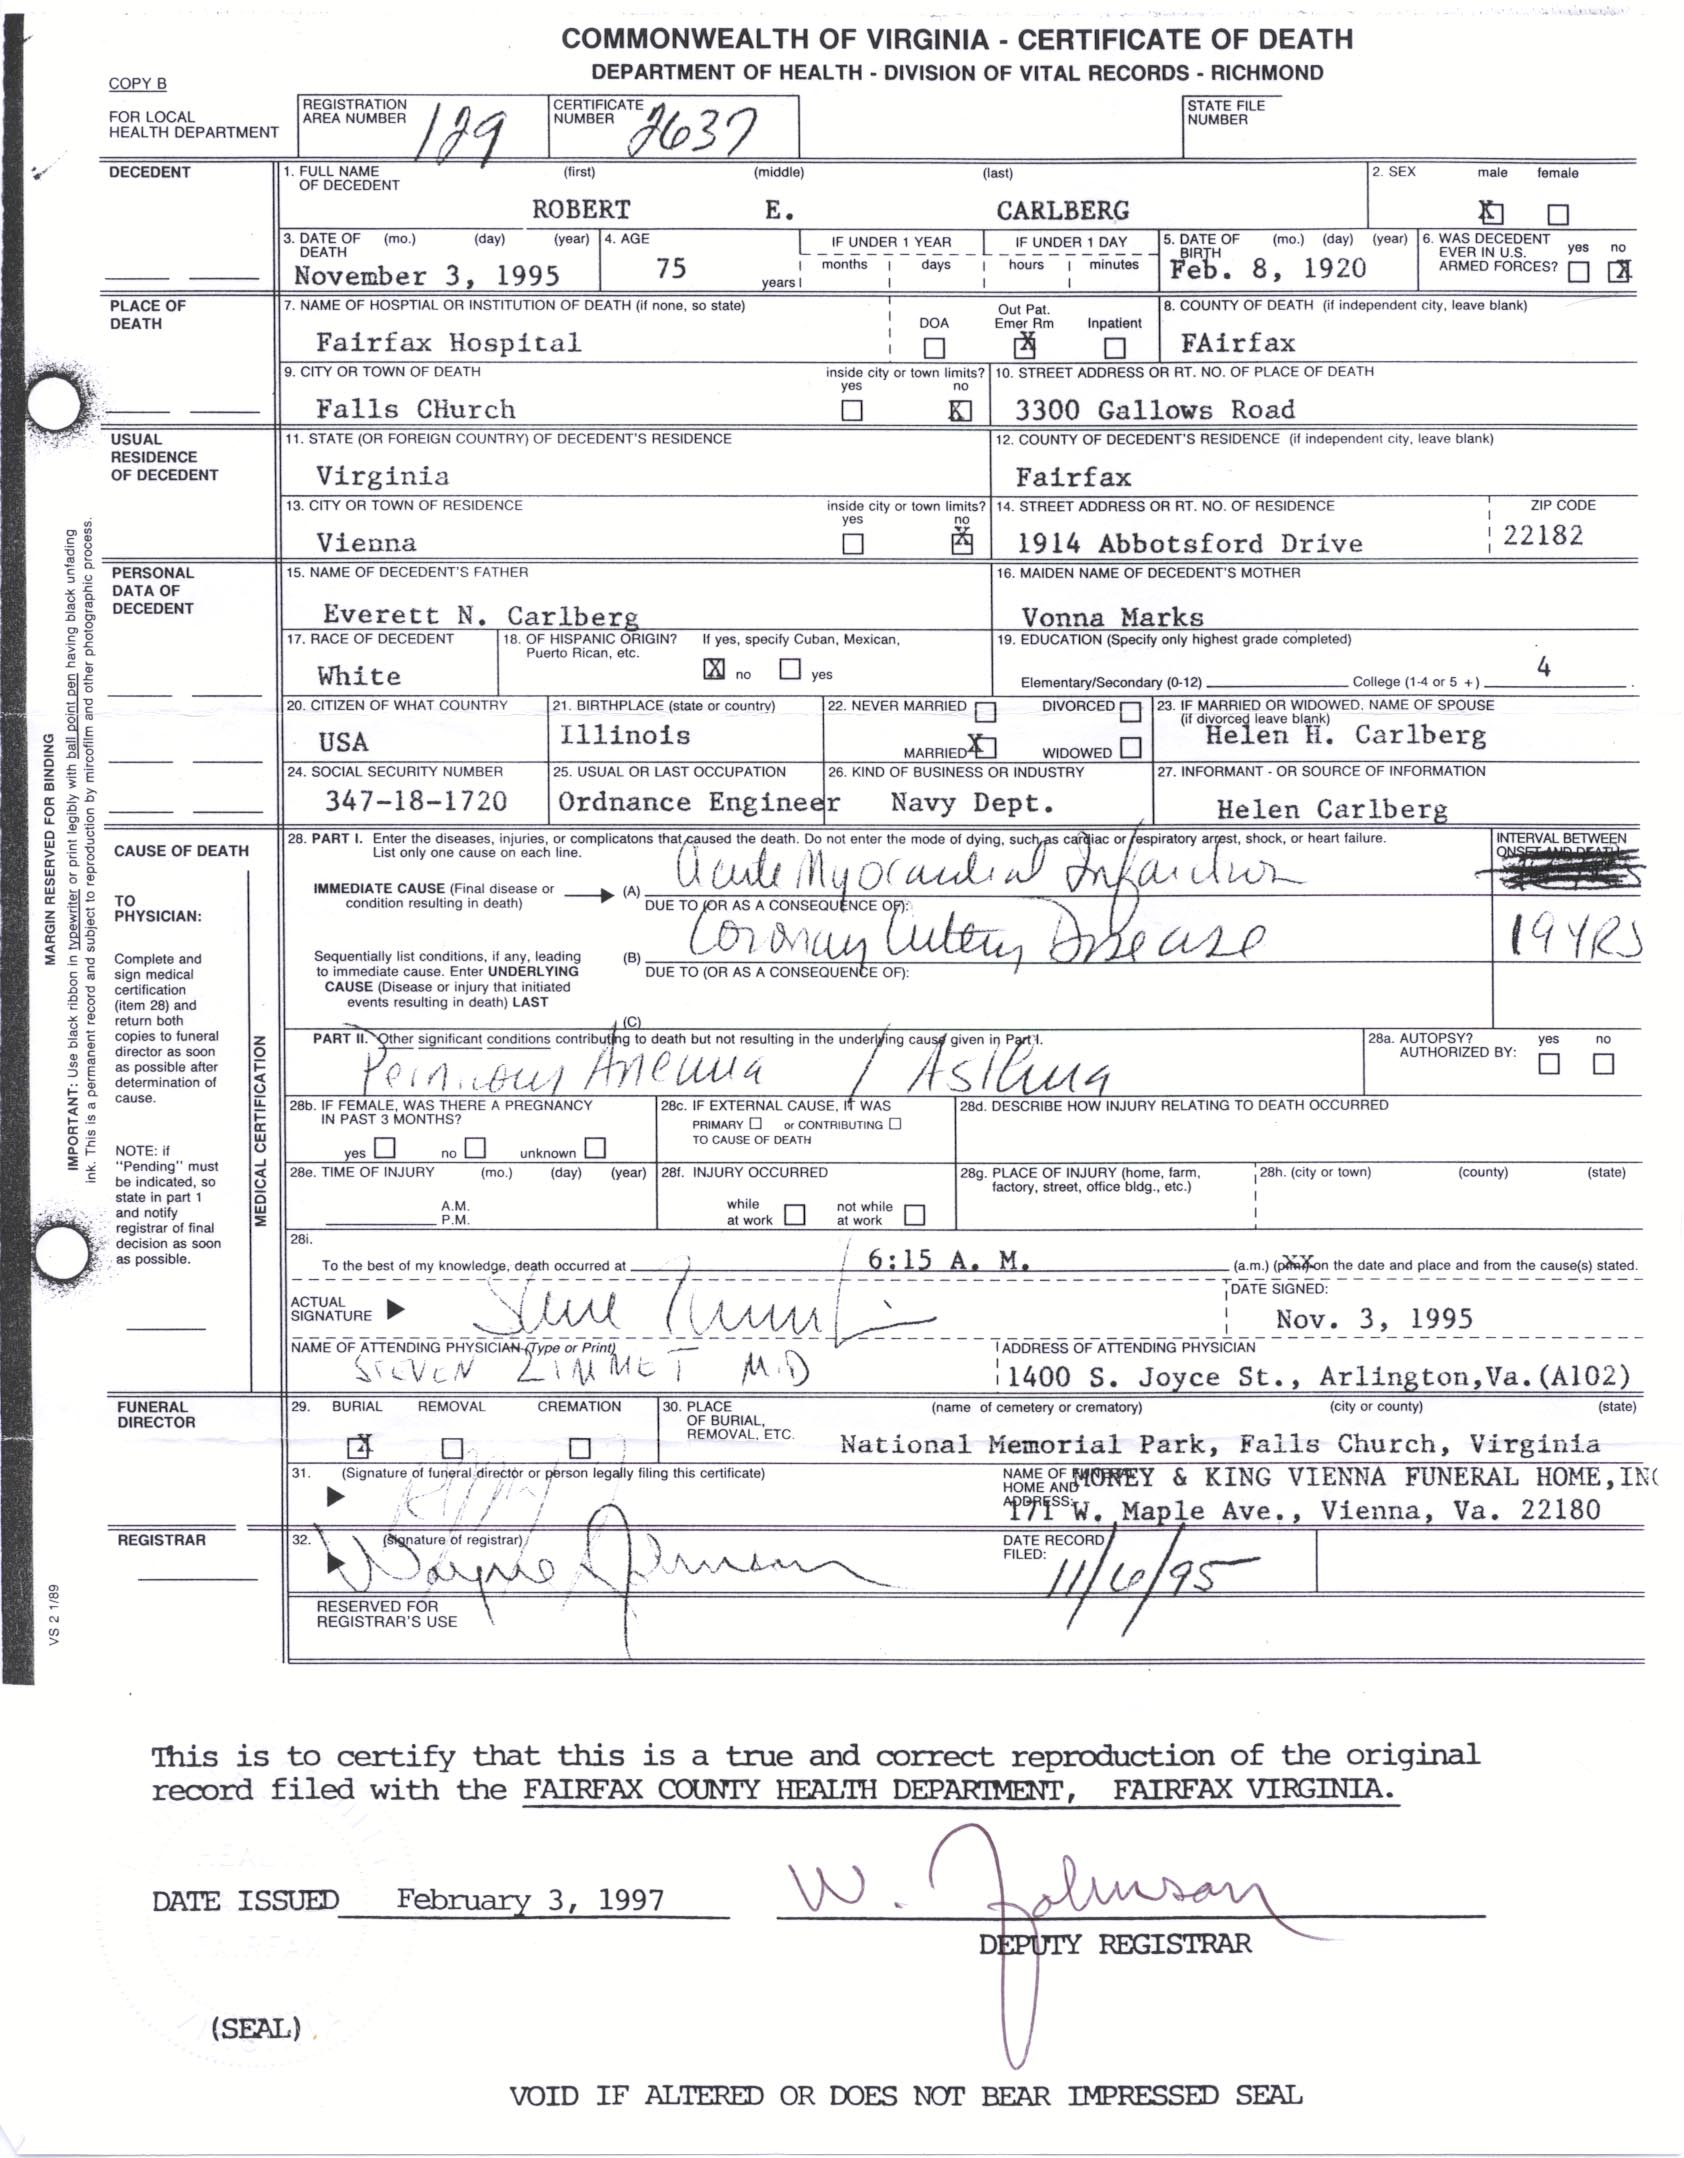 COMMONWEALTH OF VIRGINIA - CERTIFICATE OF DEATH
DEPARTMENT OF HEALTH - DIVISION OF VITAL RECORDS - RICHMOND
COPY B
FOR LOCAL HEALTH DEPARTMENT
REGISTRATION AREA NUMBER 129
CERTIFICATE NUMBER 2637
STATE FILE NUMBER
DECEDENT
1. FULL NAME OF DECEDENT (first) (middle) (last)
ROBERT E. CARLBERG
2. SEX male female
X
3. DATE OF DEATH (mo.) (day) (year)
November 3, 1995
4. AGE
75 years
IF UNDER 1 YEAR months days
IF UNDER 1 DAY hours minutes
5. DATE OF BIRTH (mo.) (day) (year)
Feb. 8, 1920
6. WAS DECEDENT EVER IN U.S. ARMED FORCES? yes no
X
PLACE OF DEATH
7. NAME OF HOSPTIAL OR INSTITUTION OF DEATH (if none, so state)
Fairfax Hospital
DOA Out Pat. Emer Rm Inpatient
X
8. COUNTY OF DEATH (if independent city, leave blank)
FAirfax
9. CITY OR TOWN OF DEATH
Falls CHurch
inside city or town limits? yes no
X
10. STREET ADDRESS OR RT. NO. OF PLACE OF DEATH
3300 Gallows Road
USUAL RESIDENCE OF DECEDENT
11. STATE (OR FOREIGN COUNTRY) OF DECEDENT'S RESIDENCE
Virginia
12. COUNTY OF DECEDENT'S RESIDENCE (if independent city, leave blank)
Fairfax
13. CITY OR TOWN OF RESIDENCE
Vienna
inside city or town limits? yes no
X
14. STREET ADDRESS OR RT. NO. OF RESIDENCE
1914 Abbotsford Drive
ZIP CODE
22182
PERSONAL DATA OF DECEDENT
15. NAME OF DECEDENT'S FATHER
Everett N. Carlberg
16. MAIDEN NAME OF DECEDENT'S MOTHER
Vonna Marks
17. RACE OF DECEDENT
White
18. OF HISPANIC ORIGIN? If yes, specify Cuban, Mexican, Puerto Rican, etc.
X no yes
19. EDUCATION (Specify only highest grade completed)
Elementary/Secondary (0-12) College (1-4 or 5 +) 4
20. CITIZEN OF WHAT COUNTRY
USA
21. BIRTHPLACE (state or country)
Illinois
22. NEVER MARRIED DIVORCED
MARRIED X WIDOWED
23. IF MARRIED OR WIDOWED, NAME OF SPOUSE (if divorced leave blank)
Helen H. Carlberg
24. SOCIAL SECURITY NUMBER
347-18-1720
25. USUAL OR LAST OCCUPATION
Ordnance Engineer
26. KIND OF BUSINESS OR INDUSTRY
Navy Dept.
27. INFORMANT - OR SOURCE OF INFORMATION
Helen Carlberg
CAUSE OF DEATH
TO PHYSICIAN:
Complete and sign medical certification (item 28) and return both copies to funeral director as soon as possible after determination of cause.
NOTE: if "Pending" must be indicated, so state in part 1 and notify registrar of final decision as soon as possible.
MEDICAL CERTIFICATION
28. PART I. Enter the diseases, injuries, or complicatons that caused the death. Do not enter the mode of dying, such as cardiac or respiratory arrest, shock, or heart failure.
List only one cause on each line.
INTERVAL BETWEEN ONSET AND DEATH
IMMEDIATE CAUSE (Final disease or condition resulting in death)
(A) Acute Myocardial Infarction
DUE TO (OR AS A CONSEQUENCE OF):
Sequentially list conditions, if any, leading to immediate cause. Enter UNDERLYING CAUSE (Disease or injury that initiated events resulting in death) LAST
(B) Coronary Artery Disease
19 YRS
DUE TO (OR AS A CONSEQUENCE OF):
(C)
PART II. Other significant conditions contributing to death but not resulting in the underlying cause given in Part I.
Pernicious Anemia / Asthma
28a. AUTOPSY? AUTHORIZED BY: yes no
28b. IF FEMALE, WAS THERE A PREGNANCY IN PAST 3 MONTHS?
yes no unknown
28c. IF EXTERNAL CAUSE, IT WAS
PRIMARY or CONTRIBUTING
TO CAUSE OF DEATH
28d. DESCRIBE HOW INJURY RELATING TO DEATH OCCURRED
28e. TIME OF INJURY (mo.) (day) (year)
A.M.
P.M.
28f. INJURY OCCURRED
while at work not while at work
28g. PLACE OF INJURY (home, farm, factory, street, office bldg., etc.)
28h. (city or town) (county) (state)
28i.
To the best of my knowledge, death occurred at 6:15 A. M. (a.m.) (p.m.) on the date and place and from the cause(s) stated.
ACTUAL SIGNATURE
DATE SIGNED:
Nov. 3, 1995
NAME OF ATTENDING PHYSICIAN (Type or Print)
STEVEN ZIMMET M.D
ADDRESS OF ATTENDING PHYSICIAN
1400 S. Joyce St., Arlington,Va.(A102)
FUNERAL DIRECTOR
29. BURIAL REMOVAL CREMATION
X
30. PLACE OF BURIAL, REMOVAL, ETC. (name of cemetery or crematory) (city or county) (state)
National Memorial Park, Falls Church, Virginia
31. (Signature of funeral director or person legally filing this certificate)
NAME OF FUNERAL HOME AND ADDRESS:
MONEY & KING VIENNA FUNERAL HOME,INC
171 W. Maple Ave., Vienna, Va. 22180
REGISTRAR
32. (Signature of registrar)
Wayne Johnson
DATE RECORD FILED:
11/6/95
RESERVED FOR REGISTRAR'S USE
MARGIN RESERVED FOR BINDING
IMPORTANT: Use black ribbon in typewriter or print legibly with ball point pen having black unfading
ink. This is a permanent record and subject to reproduction by mircofilm and other photographic process.
VS 2 1/89
This is to certify that this is a true and correct reproduction of the original
record filed with the FAIRFAX COUNTY HEALTH DEPARTMENT, FAIRFAX VIRGINIA.
DATE ISSUED February 3, 1997
W. Johnson
DEPUTY REGISTRAR
(SEAL)
VOID IF ALTERED OR DOES NOT BEAR IMPRESSED SEAL